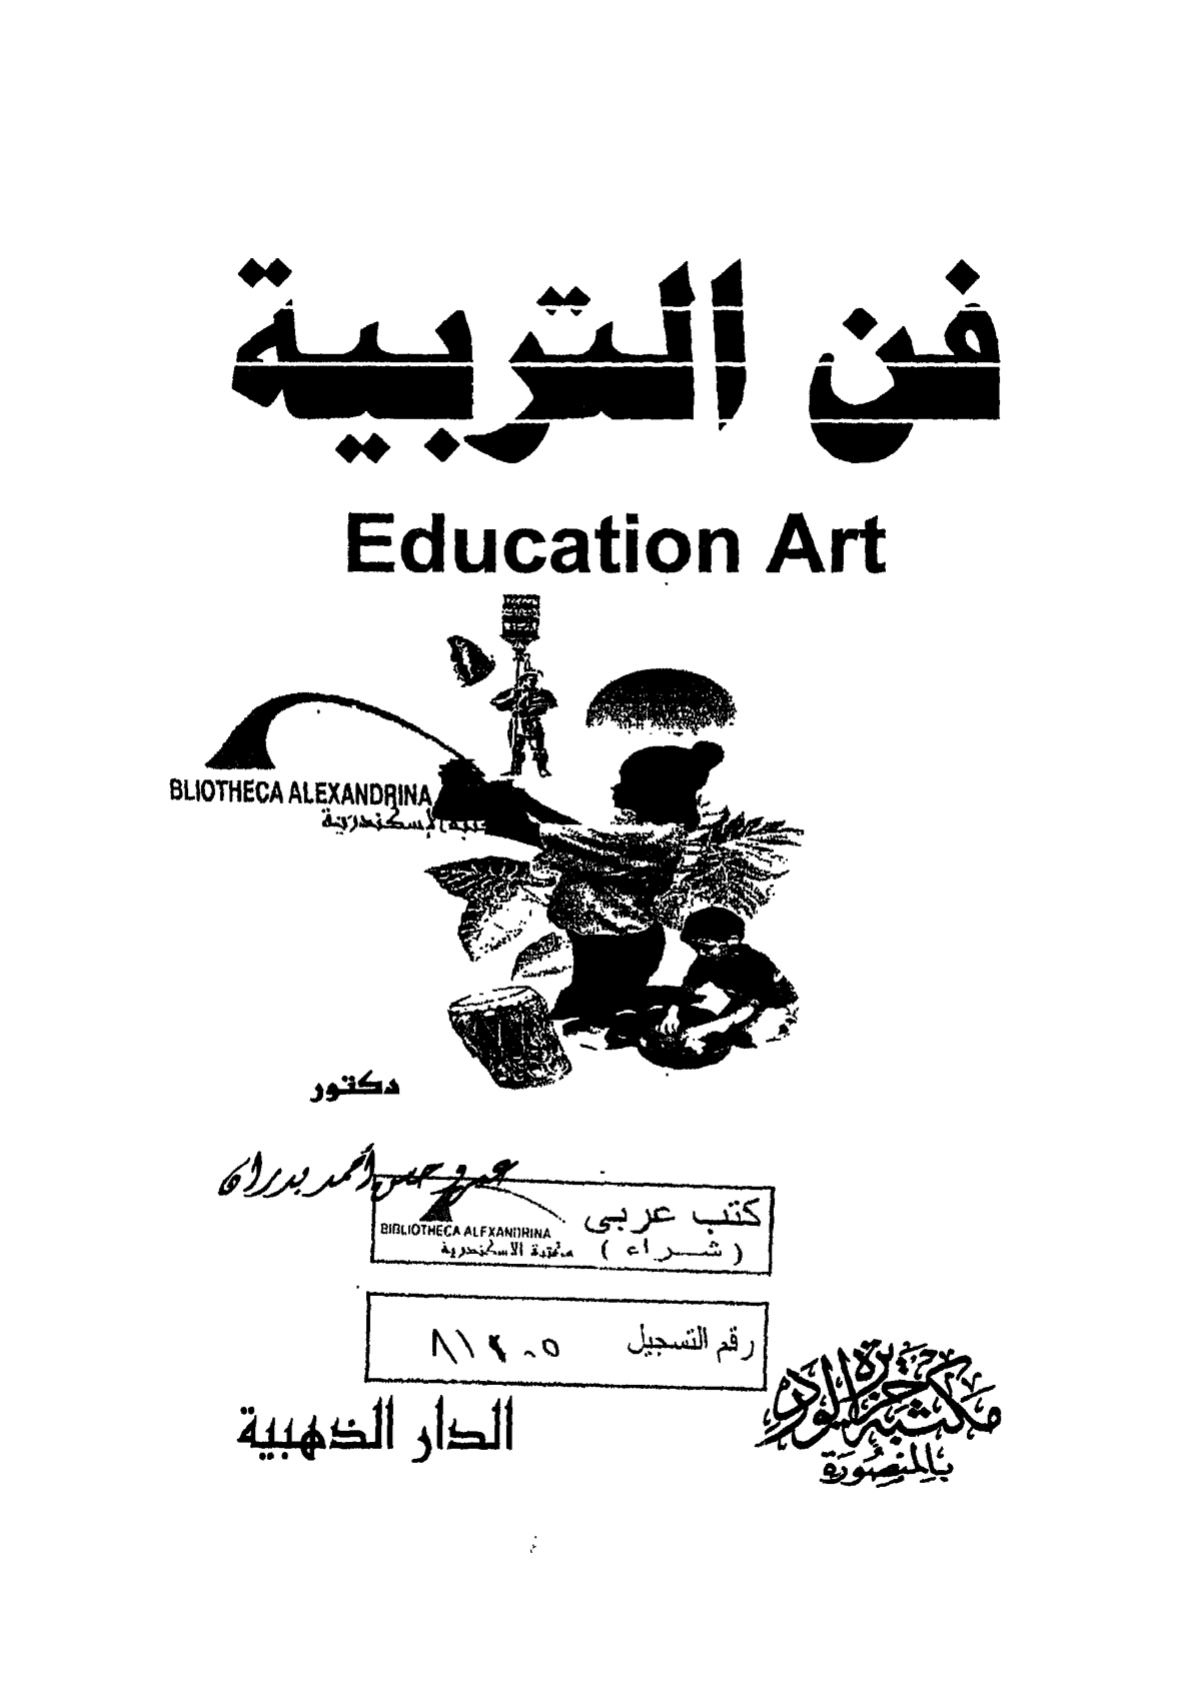 فن التربية
Education Art
BLIOTHECA ALEXANDRINA
الإسكندرية
دكتور
عمرو حسن أحمد بدران
كتب عربى
(شراء)
BIBLIOTHECA ALEXANDRINA
مكتبة الاسكندرية
رقم التسجيل
الدار الذهبية
مكتبة جزيرة الورد
بالمنصورة